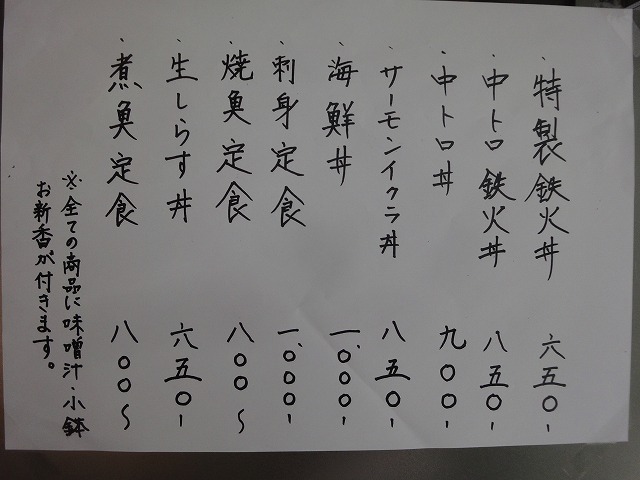 、特製鉄火丼 六五〇-
、中トロ鉄火丼 八五〇-
、中トロ丼 九〇〇-
、サーモンイクラ丼 八五〇-
、海鮮丼 一、〇〇〇-
、刺身定食 一、〇〇〇-
、焼魚定食 八〇〇〜
、生しらす丼 六五〇-
、煮魚定食 八〇〇〜
※全ての商品に味噌汁・小鉢
お新香が付きます。